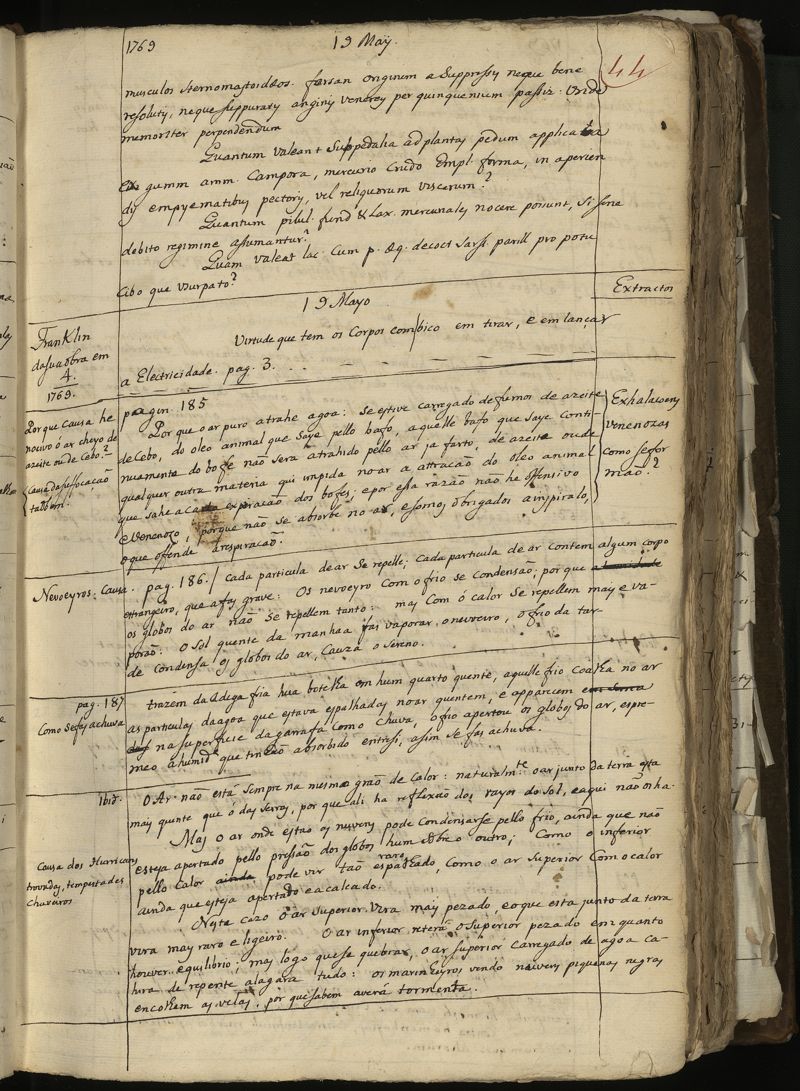 1769
19 May.
44
musculos sternomastoidæos. forsan originem a Suppressis neque bene
resolutis, neque suppuratis anginis venereis per quinquenium passis. Vide
memoriter perpendendum
Quantum valeant Suppedalia ad plantas pedum applicata
ex gumm amm. Campora, mercurio Crudo Empl. forma, in aperien
dis empyematibus pectoris, vel reliquorum viscerum?
Quantum pilul. fund & Lax. mercuriales nocere possunt, si sine
debito regimine assumantur?
Quam valeat lac. Cum p. æq. decoct Sarsæ parill pro potu
Cibo que usurpato?
Extractos
19 Mayo
Franklin
da sua obra em
4.
1769.
Virtude que tem os Corpos com bico em tirar, e em lançar
a Electricidade. pag. 3.
Por que causa he
nocivo ó ar cheyo de
azeite ou de Cebo?
Causa da suffocação
tambem!
pagin. 185
Por que o ar puro atrahe agoa: Se estive carregado de fumos de azeite
de Cebo, do oleo animal que saye pello bafo, aquelle bafo que saye Conti-
nuamente do bofe não será atrahido pello ar ja farto, de azeite ou de
qualquer outra materia qui impida no ar a attracão do oleo animal
que sahe a cada expiracão dos bofes; e por essa razão não he offensivo
e venenozo, porque não se absorbe no ar, e somos obrigados a inspiralo,
e que offende a respiracão.
Exhalacoens
venenozas
como se for
mão?
Nevoeyros: Causa.
pag. 186. / Cada particula de ar Se repelle; Cada particula de ar contem algum corpo
estrangeiro, que a fas grave: Os nevoeyros Com o frio se Condensão; por que
os globos do ar não Se repellem tanto: mas Com ó calor Se repellem mays e va-
porão: O Sol quente da manhaa fas vaporar o nevoeiro, o frio da tar-
de Condensa os globos do ar, Cauza o Sereno.
pag. 187
Como se fas a chuva
trazem da Adega fria hua botelha em hum quarto quente, aquelle frio Coalha no ar
as particulas da agoa que estava espalhadas no ar quentem, e apparicem
na superficie da garrafa Como Chuva, o frio apertou os globos do ar, espre-
meo a humide que tinhão absorbido entresi, asim se fas a chuva.
Ibid.
Causa dos Hurricans
trovadas, tempestades
chuveiros
O Ar não está sempre na mesma grão de Calor: naturalmte. o ar junto da terra esta
mays quente que ó das serras, por que ali ha reflixão dos rayos do Sol, e aqui não o ha.
Mas o ar onde estão as nuvens pode Condensarse pello frio, ainda que não
esteja apertado pello pressão dos globos hum sobre o outro; Como o inferior
pello Calor ainda pode vir tão raro espalhado, como o ar superior Com o calor
ainda que esteja apertado e acalcado.
Neste cazo ó ar superior virá mays pezado, e o que esta junto da terra
vira mays raro e ligeiro. O ar inferior retera o superior pezado em quanto
houver equilibrio; mas logo que se quebrar, o ar superior Carregado de agoa ca-
hira de repente alagara tudo: os marinheyros, vendo nuvens piquenas negras
encolhem as velas, por que sabem averá tormenta.